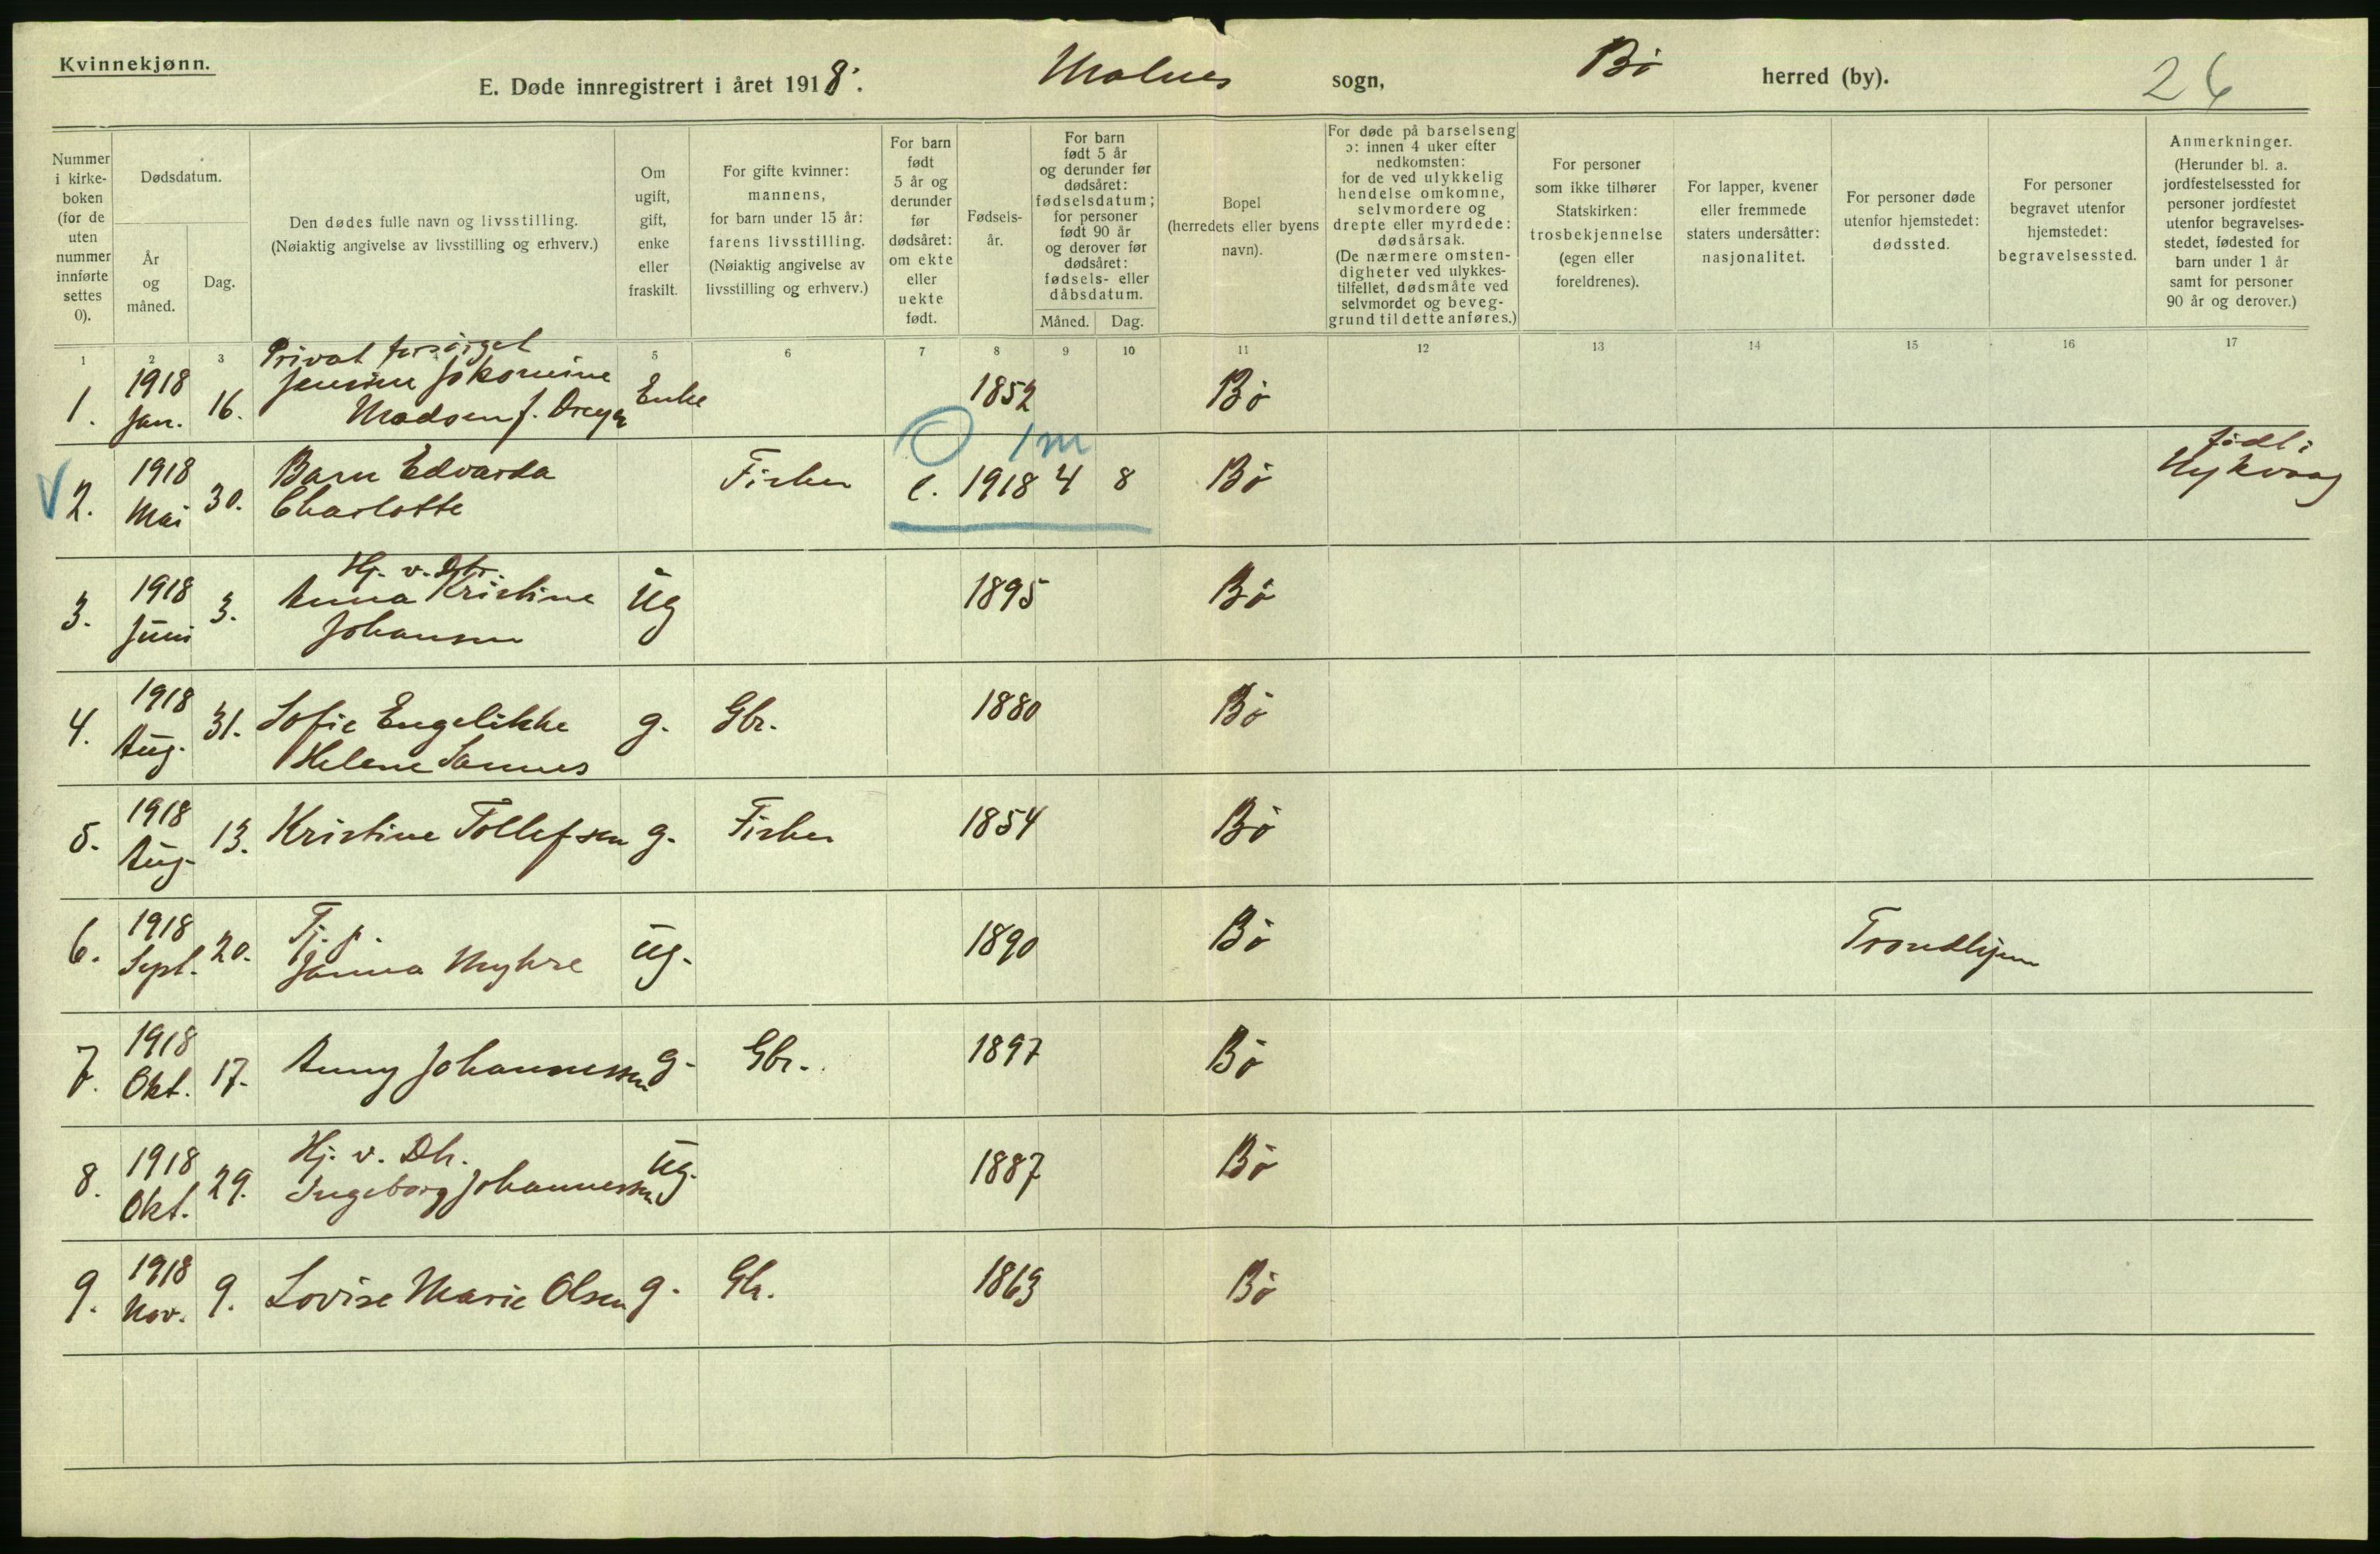 Kvinnekjønn.
E. Døde innregistrert i året 1918. Malnes sogn, Bø herred (by). 26
Nummer i kirke-boken (for de uten nummer innførte settes 0).
Dødsdatum.
År og måned.
Dag.
Den dødes fulle navn og livsstilling.
(Nøiaktig angivelse av livsstilling og erhverv.)
Om ugift, gift, enke eller fraskilt.
For gifte kvinner: mannens, for barn under 15 år: farens livsstilling.
(Nøiaktig angivelse av livsstilling og erhverv.)
For barn født 5 år og derunder før dødsåret: om ekte eller uekte født.
Fødsels-år.
For barn født 5 år og derunder før dødsåret: fødselsdatum; for personer født 90 år og derover før dødsåret: fødsels- eller dåbsdatum.
Måned. Dag.
Bopel (herredets eller byens navn).
For døde på barselseng ɔ: innen 4 uker efter nedkomsten: for de ved ulykkelig hendelse omkomne, selvmordere og drepte eller myrdede: dødsårsak.
(De nærmere omsten-digheter ved ulykkes-tilfellet, dødsmåte ved selvmordet og beveg-grund til dette anføres.)
For personer som ikke tilhører Statskirken: trosbekjennelse (egen eller foreldrenes).
For lapper, kvener eller fremmede staters undersåtter: nasjonalitet.
For personer døde utenfor hjemstedet: dødssted.
For personer begravet utenfor hjemstedet: begravelsessted.
Anmerkninger.
(Herunder bl. a. jordfestelsessted for personer jordfestet utenfor begravelses-stedet, fødested for barn under 1 år samt for personer 90 år og derover.)
1 2 3 5 6 7 8 9 10 11 12 13 14 15 16 17
Privat forsørget
1. 1918 Jan. 16. Jensine Jakomine Madsen f. Dreyer Enke 1852 Bø
O 1m
V 2. 1918 Mai 30. Barn Edvarda Charlotte Fisker e. 1918 4 8 Bø født i Nykvaag
Hj. v. Dtr.
3. 1918 Juni 3. Anna Kristine Johansen Ug 1895 Bø
4. 1918 Aug. 31. Sofie Engelikke Helene Sannes g. Gbr. 1880 Bø
5. 1918 Aug. 13. Kristine Tollefsen g. Fisker 1854 Bø
Tj. p.
6. 1918 Sept. 20. Janna Myhre Ug. 1890 Bø Trondhjem
7. 1918 Okt. 17. Anny Johannessen g. Gbr. 1897 Bø
Hj. v. Dh.
8. 1918 Okt. 29. Ingeborg Johannessen Ug. 1887 Bø
9. 1918 Nov. 9. Lovise Marie Olsen g. Gb. 1863 Bø